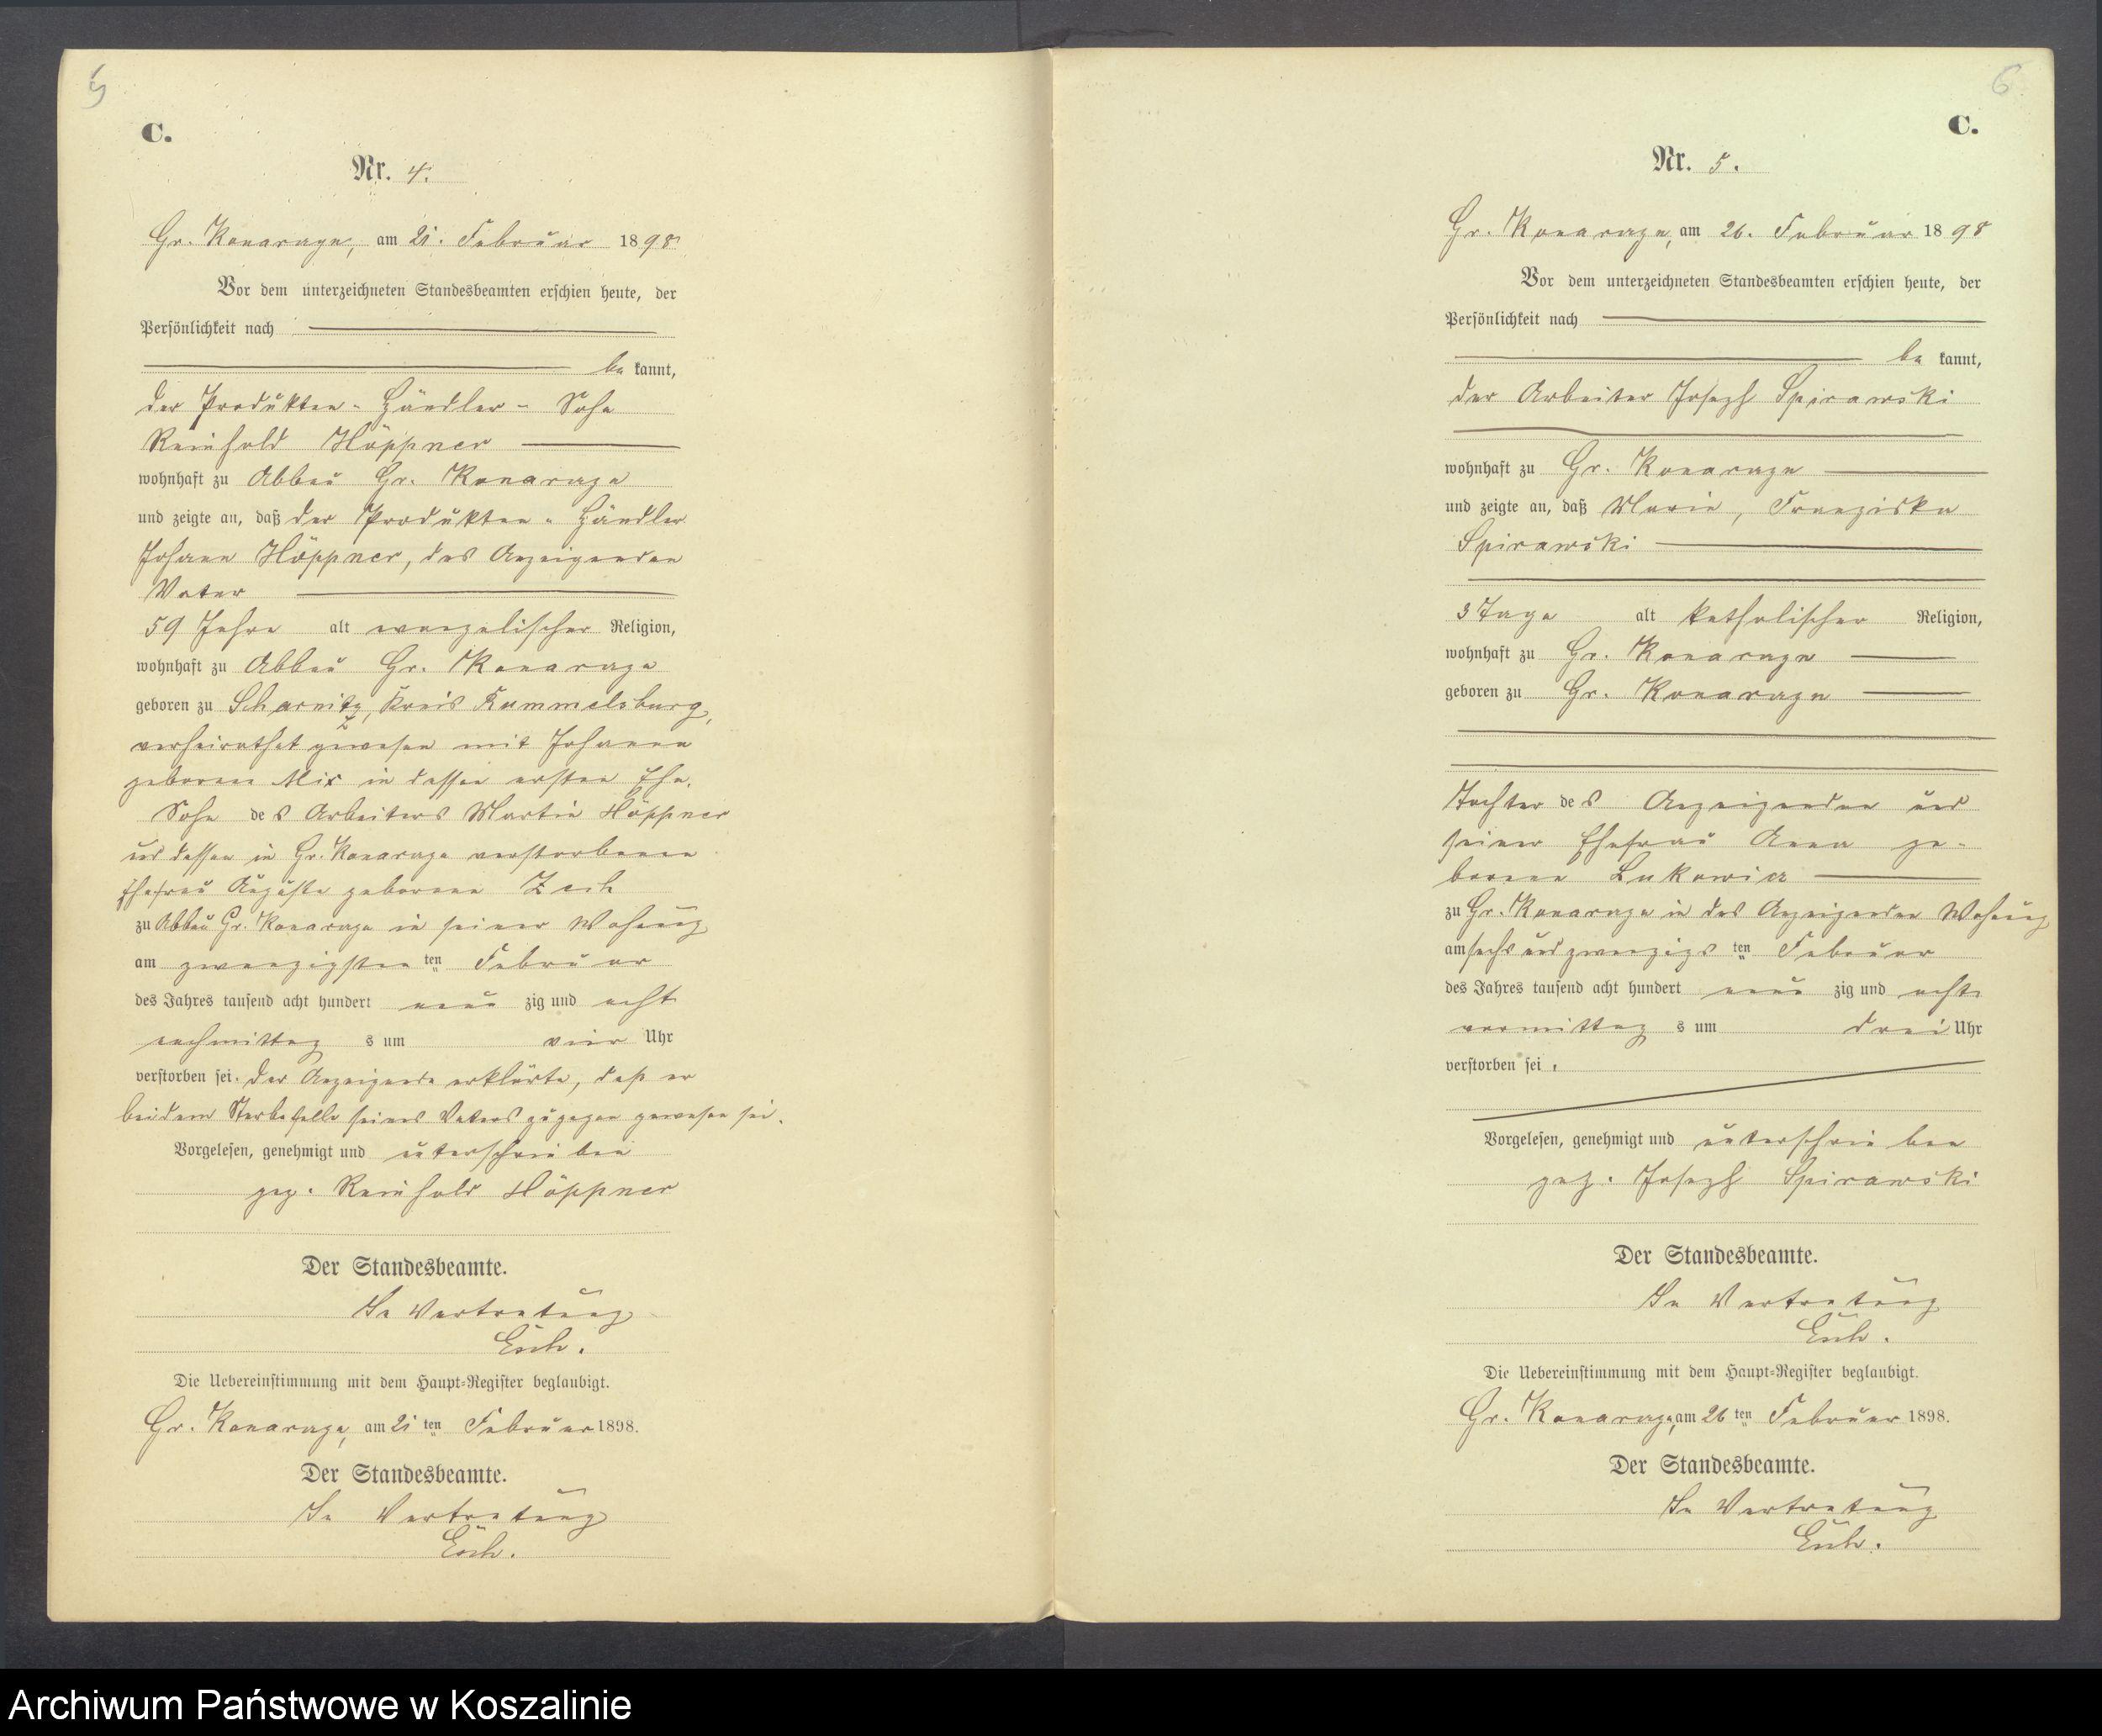 5
C.
Nr. 4.
Gr. Konarzyn, am 21. Februar 1898
Vor dem unterzeichneten Standesbeamten erschien heute, der
Persönlichkeit nach
be kannt,
der Produkten-Händler-Sohn
Reinhold Höppner
wohnhaft zu Abbau Gr. Konarzyn
und zeigte an, daß der Produkten-Händler
Johann Höppner, des Anzeigenden
Vater
59 Jahre alt evangelischer Religion,
wohnhaft zu Abbau Gr. Konarzyn
geboren zu Kreis Rummelsburg,
verheirathet gewesen mit Johanna
geborene Mix in dessen ersten Ehe,
Sohn des Arbeiters Martin Höppner
und dessen in Gr. Konarzyn verstorbenen
Ehefrau Auguste geborene Zech
zu Abbau Gr. Konarzyn in seiner Wohnung
am zwanzigsten ten Februar
des Jahres tausend acht hundert neun zig und acht
nachmittag s um vier Uhr
verstorben sei. Der Anzeigende erklärte, daß er
bei dem Sterbefalle seines Vaters zugegen gewesen sei.
Vorgelesen, genehmigt und unterschrieben
gez. Reinhold Höppner
Der Standesbeamte.
In Vertretung
Die Uebereinstimmung mit dem Haupt-Register beglaubigt.
Gr. Konarzyn, am 21 ten Februar 1898.
Der Standesbeamte.
In Vertretung
6
C.
Nr. 5.
Gr. Konarzyn, am 26. Februar 1898
Vor dem unterzeichneten Standesbeamten erschien heute, der
Persönlichkeit nach
be kannt,
der Arbeiter Joseph Spirawski
wohnhaft zu Gr. Konarzyn
und zeigte an, daß Marie, Franziska
Spirawski
3 Tage alt katholischer Religion,
wohnhaft zu Gr. Konarzyn
geboren zu Gr. Konarzyn
Tochter des Anzeigenden und
seiner Ehefrau Anna ge-
borene Lukowicz
zu Gr. Konarzyn in des Anzeigenden Wohnung
am sechs und zwanzigs ten Februar
des Jahres tausend acht hundert neun zig und acht
vormittag s um drei Uhr
verstorben sei.
Vorgelesen, genehmigt und unterschrieben
gez. Joseph Spirawski
Der Standesbeamte.
In Vertretung
Die Uebereinstimmung mit dem Haupt-Register beglaubigt.
Gr. Konarzyn, am 26 ten Februar 1898.
Der Standesbeamte.
In Vertretung
Archiwum Państwowe w Koszalinie